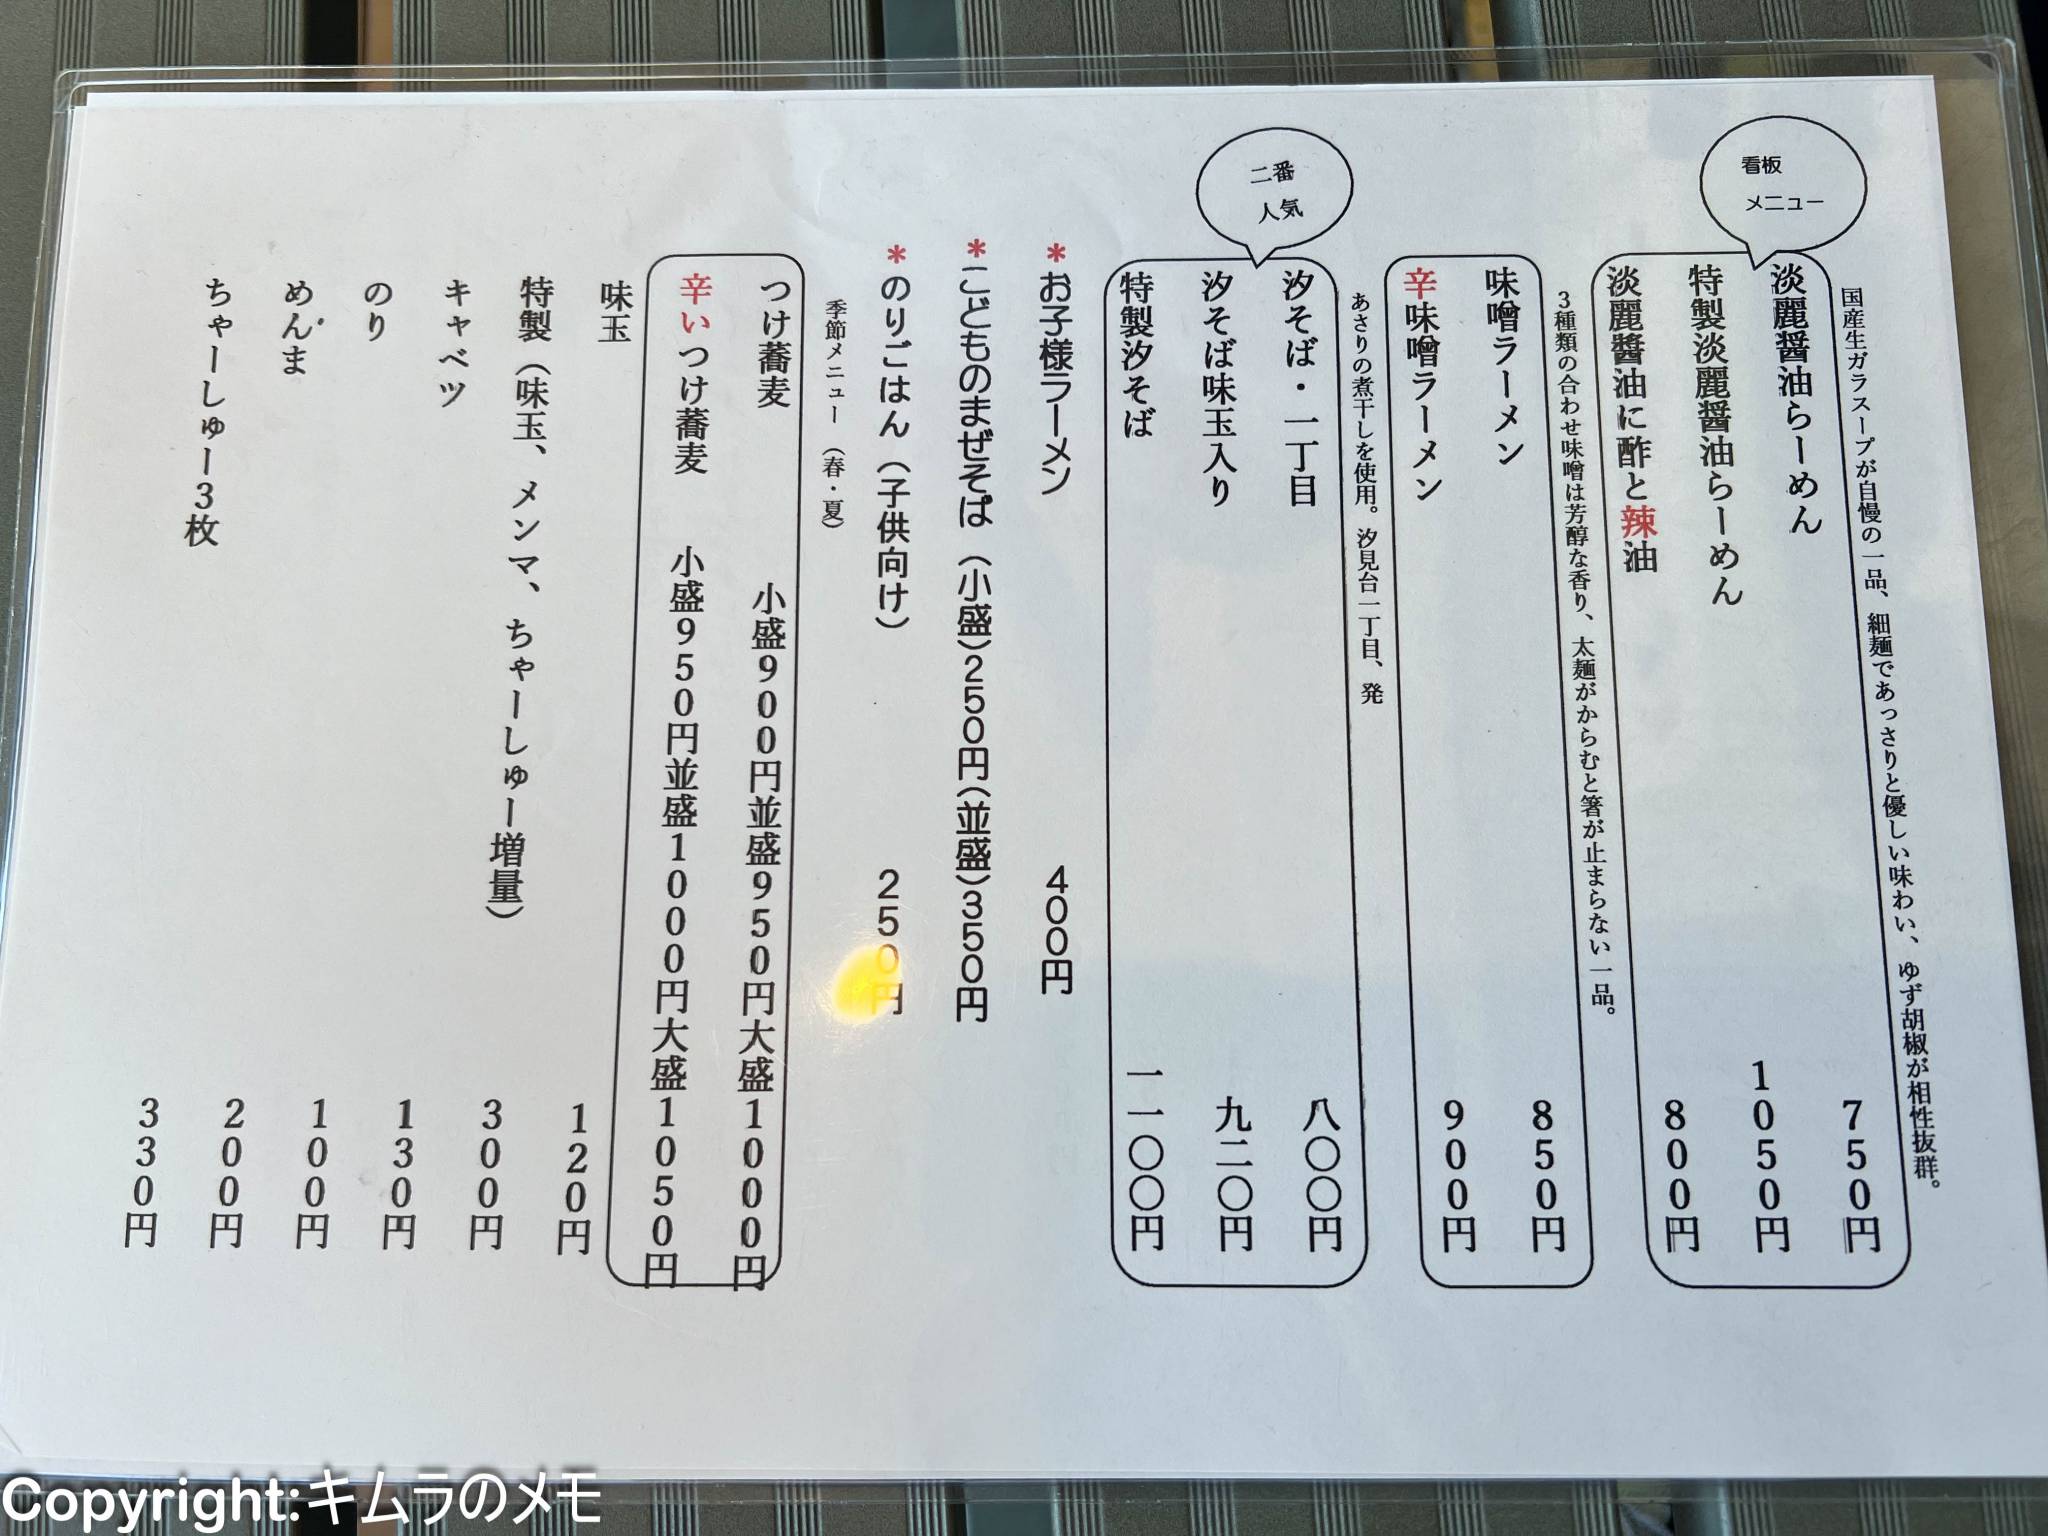 看板
メニュー
国産生ガラスープが自慢の一品、細麺であっさりと優しい味わい、ゆず胡椒が相性抜群。
淡麗醤油らーめん 750円
特製淡麗醤油らーめん 1050円
淡麗醬油に酢と辣油 800円
3種類の合わせ味噌は芳醇な香り、太麺がからむと箸が止まらない一品。
味噌ラーメン 850円
辛味噌ラーメン 900円
二番
人気
あさりの煮干しを使用。汐見台一丁目、発
汐そば・一丁目 八〇〇円
汐そば味玉入り 九二〇円
特製汐そば 一一〇〇円
*お子様ラーメン 400円
*こどものまぜそば(小盛)250円(並盛)350円
*のりごはん(子供向け) 250円
季節メニュー(春・夏)
つけ蕎麦 小盛900円並盛950円大盛1000円
辛いつけ蕎麦 小盛950円並盛1000円大盛1050円
味玉 120円
特製(味玉、メンマ、ちゃーしゅー増量) 300円
キャベツ 130円
のり 100円
めんま 200円
ちゃーしゅー3枚 330円
Copyright:キムラのメモ